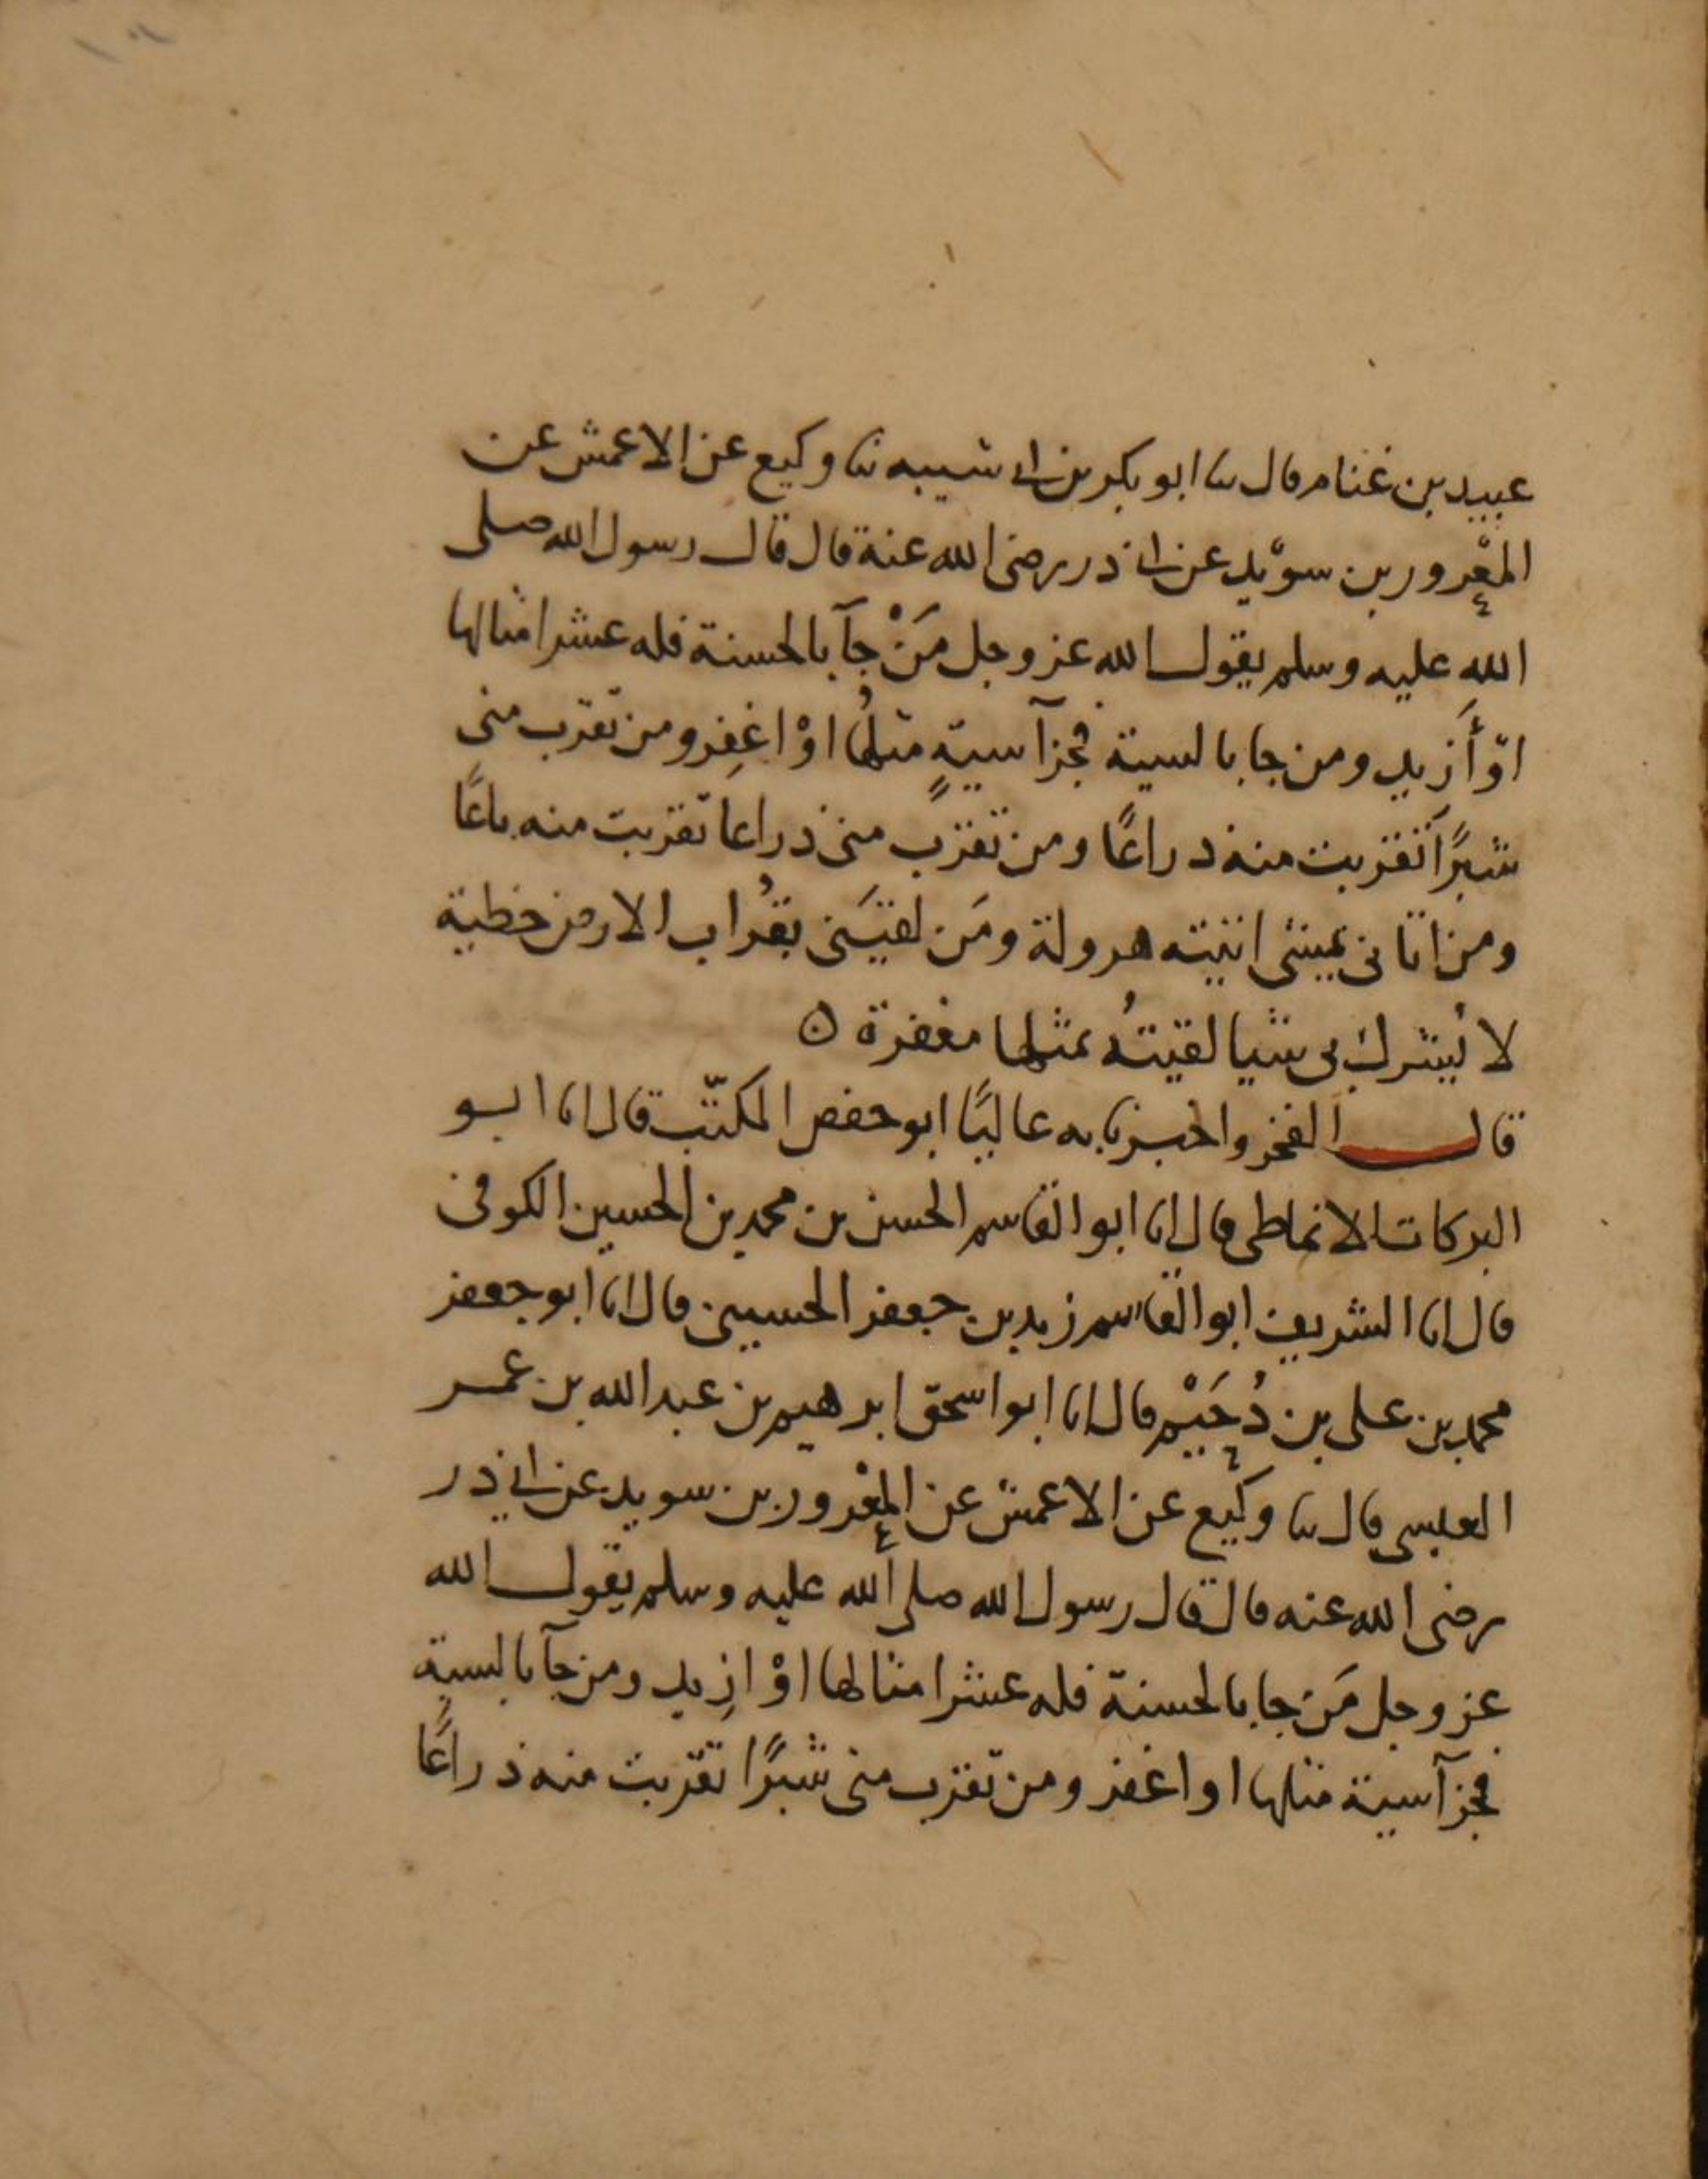 عبيد بن غنام قال ثنا ابو بكر بن ابى شيبه ثنا وكيع عن الاعمش عن
المعْرور بن سوْيد عن ابى ذر رضى الله عنة قال قال رسول الله صلى
الله عليه وسلم يقول الله عز وجل مَنْ جآ بالحسنة فله عشر امثالها
اوْ أَزيد ومن جا بالسية فجزآ سيةٍ مثلُها اوْ اغفِر ومن تقرب منى
شبرًا تقربت منه ذراعًا ومن تقرب منى ذراعا تقربت منه باعًا
ومن اتانى يمشى اتيته هرولة ومَن لقيَنى بقُراب الارض خطية
لا يُشرك بى شيا لقيتهُ بمثلها مغفرة ه
قال الفخر واخبرنا به عاليًا ابو حفص المكتّب قال انا ابو
البركات الانماطى قال انا ابو القاسم الحسن بن محمد بن الحسين الكوفى
قال انا الشريف ابو القاسم زيد بن جعفر الحسينى قال انا ابو جعفر
محمد بن على بن دُحَيْم قال انا ابو اسحق ابرهيم بن عبد الله بن عمر
العبسى قال ثنا وكيع عن الاعمش عن المعْرور بن سويد عن ابى ذر
رضى الله عنه قال قال رسول الله صلى الله عليه وسلم يقول الله
عز وجل مَن جا بالحسنة فله عشر امثالها اوْ ازِيد ومن جآ بالسية
فجزآ سية مثلها او اغفر ومن تقرب منى شبرًا تقرّبت منه ذراعًا